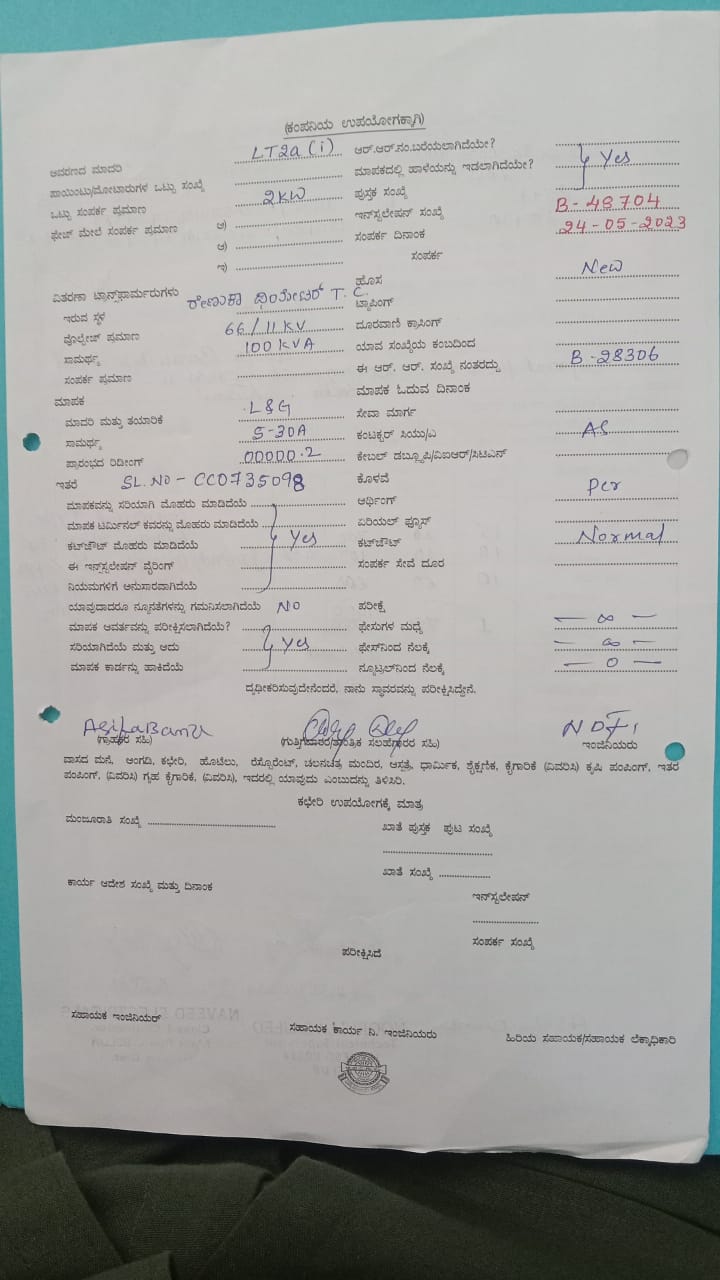 (ಕಂಪನಿಯ ಉಪಯೋಗಕ್ಕಾಗಿ)
ಆವರಣದ ಮಾದರಿ LT2a (i) ಆರ್.ಆರ್.ನಂ.ಬರೆಯಲಾಗಿದೆಯೇ?
ಪಾಯಿಂಟು/ಮೋಟಾರುಗಳ ಒಟ್ಟು ಸಂಖ್ಯೆ ಮಾಪಕದಲ್ಲಿ ಹಾಳೆಯನ್ನು ಇಡಲಾಗಿದೆಯೇ? Yes
ಒಟ್ಟು ಸಂಪರ್ಕ ಪ್ರಮಾಣ 2KW ಪುಸ್ತಕ ಸಂಖ್ಯೆ
ಫೇಜ್ ಮೇಲೆ ಸಂಪರ್ಕ ಪ್ರಮಾಣ ಅ) ಇನ್‌ಸ್ಟಲೇಷನ್ ಸಂಖ್ಯೆ B-48704
ಆ) ಸಂಪರ್ಕ ದಿನಾಂಕ 24-05-2023
ಇ) ಸಂಪರ್ಕ
ವಿತರಣಾ ಟ್ರಾನ್ಸ್‌ಫಾರ್ಮರುಗಳು ಹೊಸ New
ಇರುವ ಸ್ಥಳ ರೇಣುಕಾ ಥಿಯೇಟರ್ T.C. ಟ್ಯಾಪಿಂಗ್
ವೋಲ್ಟೇಜ್ ಪ್ರಮಾಣ 66/11KV ದೂರವಾಣಿ ಕ್ರಾಸಿಂಗ್
ಸಾಮರ್ಥ್ಯ 100KVA ಯಾವ ಸಂಖ್ಯೆಯ ಕಂಬದಿಂದ
ಸಂಪರ್ಕ ಪ್ರಮಾಣ ಈ ಆರ್. ಆರ್. ಸಂಖ್ಯೆ ನಂತರದ್ದು B-28306
ಮಾಪಕ ಮಾಪಕ ಓದುವ ದಿನಾಂಕ
ಮಾದರಿ ಮತ್ತು ತಯಾರಿಕೆ L&G ಸೇವಾ ಮಾರ್ಗ
ಸಾಮರ್ಥ್ಯ 5-30A ಕಂಟಕ್ಟರ್ ಸಿಯು/ಎ AS
ಪ್ರಾರಂಭದ ರಿಡೀಂಗ್ 00000.2 ಕೇಬಲ್ ಡಬ್ಲ್ಯೂಪಿ/ವಿಐಆರ್/ಸಿಟಿಎಸ್
ಇತರೆ SL.NO-CC0735098 ಕೊಳವೆ
ಮಾಪಕವನ್ನು ಸರಿಯಾಗಿ ಮೊಹರು ಮಾಡಿದೆಯೆ ಅರ್ಥಿಂಗ್ per
ಮಾಪಕ ಟರ್ಮಿನಲ್ ಕವರನ್ನು ಮೊಹರು ಮಾಡಿದೆಯೆ ಏರಿಯಲ್ ಫ್ಯೂಸ್
ಕಟ್‌ಔಟ್ ಮೊಹರು ಮಾಡಿದೆಯೆ Yes ಕಟ್‌ಔಟ್ Normal
ಈ ಇನ್‌ಸ್ಟಲೇಷನ್ ವೈರಿಂಗ್ ಸಂಪರ್ಕ ಸೇವೆ ದೂರ
ನಿಯಮಗಳಿಗೆ ಅನುಸಾರವಾಗಿದೆಯೆ
ಯಾವುದಾದರೂ ನ್ಯೂನತೆಗಳನ್ನು ಗಮನಿಸಲಾಗಿದೆಯೆ NO ಪರೀಕ್ಷೆ
ಮಾಪಕ ಆವರ್ತವನ್ನು ಪರೀಕ್ಷಿಸಲಾಗಿದೆಯೆ? ಫೇಸುಗಳ ಮಧ್ಯೆ — ∞ —
ಸರಿಯಾಗಿದೆಯೆ ಮತ್ತು ಅದು Yes ಫೇಸ್‌ನಿಂದ ನೆಲಕ್ಕೆ — ∞ —
ಮಾಪಕ ಕಾರ್ಡನ್ನು ಹಾಕಿದೆಯೆ ನ್ಯೂಟ್ರಲ್‌ನಿಂದ ನೆಲಕ್ಕೆ — 0 —
ದೃಢೀಕರಿಸುವುದೇನೆಂದರೆ, ನಾನು ಸ್ಥಾವರವನ್ನು ಪರೀಕ್ಷಿಸಿದ್ದೇನೆ.
AsifaBanu
(ಗ್ರಾಹಕರ ಸಹಿ) (ಗುತ್ತಿಗೆದಾರರ/ತಾಂತ್ರಿಕ ಸಲಹೆಗಾರರ ಸಹಿ) ಇಂಜಿನಿಯರು
ವಾಸದ ಮನೆ, ಅಂಗಡಿ, ಕಛೇರಿ, ಹೊಟೆಲು, ರೆಸ್ಟೊರೆಂಟ್, ಚಲನಚಿತ್ರ ಮಂದಿರ, ಆಸ್ಪತ್ರೆ, ಧಾರ್ಮಿಕ, ಶೈಕ್ಷಣಿಕ, ಕೈಗಾರಿಕೆ (ವಿವರಿಸಿ) ಕೃಷಿ ಪಂಪಿಂಗ್, ಇತರೆ
ಪಂಪಿಂಗ್, (ವಿವರಿಸಿ) ಗೃಹ ಕೈಗಾರಿಕೆ, (ವಿವರಿಸಿ), ಇದರಲ್ಲಿ ಯಾವುದು ಎಂಬುದನ್ನು ತಿಳಿಸಿರಿ.
ಕಛೇರಿ ಉಪಯೋಗಕ್ಕೆ ಮಾತ್ರ
ಮಂಜೂರಾತಿ ಸಂಖ್ಯೆ ಖಾತೆ ಪುಸ್ತಕ ಪುಟ ಸಂಖ್ಯೆ
ಖಾತೆ ಸಂಖ್ಯೆ
ಕಾರ್ಯ ಆದೇಶ ಸಂಖ್ಯೆ ಮತ್ತು ದಿನಾಂಕ ಇನ್‌ಸ್ಟಲೇಷನ್
ಸಂಪರ್ಕ ಸಂಖ್ಯೆ
ಪರೀಕ್ಷಿಸಿದೆ
ಸಹಾಯಕ ಇಂಜಿನಿಯರ್ ಸಹಾಯಕ ಕಾರ್ಯ ನಿ. ಇಂಜಿನಿಯರು ಹಿರಿಯ ಸಹಾಯಕ/ಸಹಾಯಕ ಲೆಕ್ಕಾಧಿಕಾರಿ